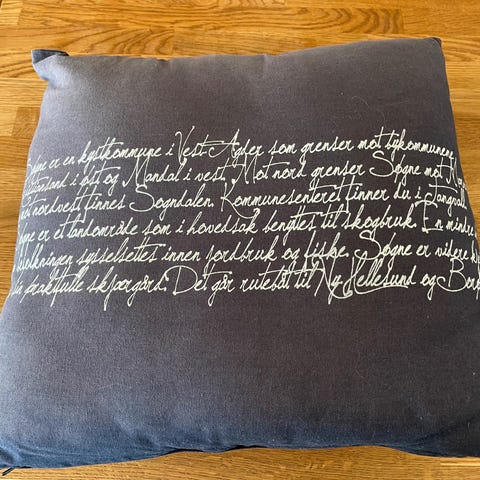 Søgne er en kystkommune i Vest-Agder som grenser mot bykommunen
Kristiansand i øst og Mandal i vest. Mot nord grenser Søgne mot
mot nordvest finnes Søgndalen. Kommunesenteret finner du i Tangvall.
er et landområde som i hovedsak bengtes til skogbruk. En mindre
befolkningen sysselsettes innen jordbruk og fiske. Søgne er videre
sin praktfulle skjærgård. Det går rutebåt til Ny-Hellesund og